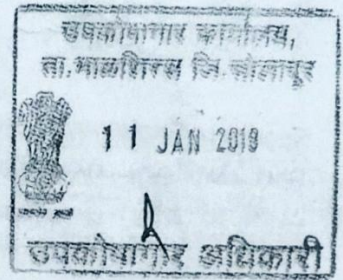 उपकोषागार कार्यालय,
ता. माळशिरस जि. सोलापूर
11 JAN 2019
उपकोषागार अधिकारी